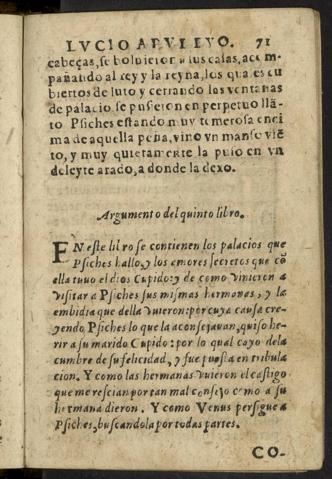 LVCIO APVLEYO. 71
cabeças, se boluieron a sus casas, acom
pañando al rey y la reyna, los quales cu
biertos de luto y cerrando las ventanas
de palacio, se pusieron en perpetuo llã
to. Psiches estando muy temerosa enci
ma de aquella peña, vino vn manso viẽ
to, y muy quietamente la puso en vn
deleyte arado, a donde la dexo.
Argumento del quinto libro.
EN este libro se contienen los palacios que
Psiches hallo, y los amores secretos que cõ
ella tuuo el dios Cupido: y de como vinieron a
visitar a Psiches sus mismas hermanas, y la
embidia que della vuieron: por cuya causa cre-
yendo Psiches lo que la aconsejauan, quiso he-
rir a su marido Cupido: por lo qual cayo de la
cumbre de su felicidad, y fue puesta en tribula
cion. Y como las hermanas vuieron el castigo
que merescian por tan mal consejo como a su
hermana dieron. Y como Venus persigue a
Psiches, buscandola por todas partes.
CO-